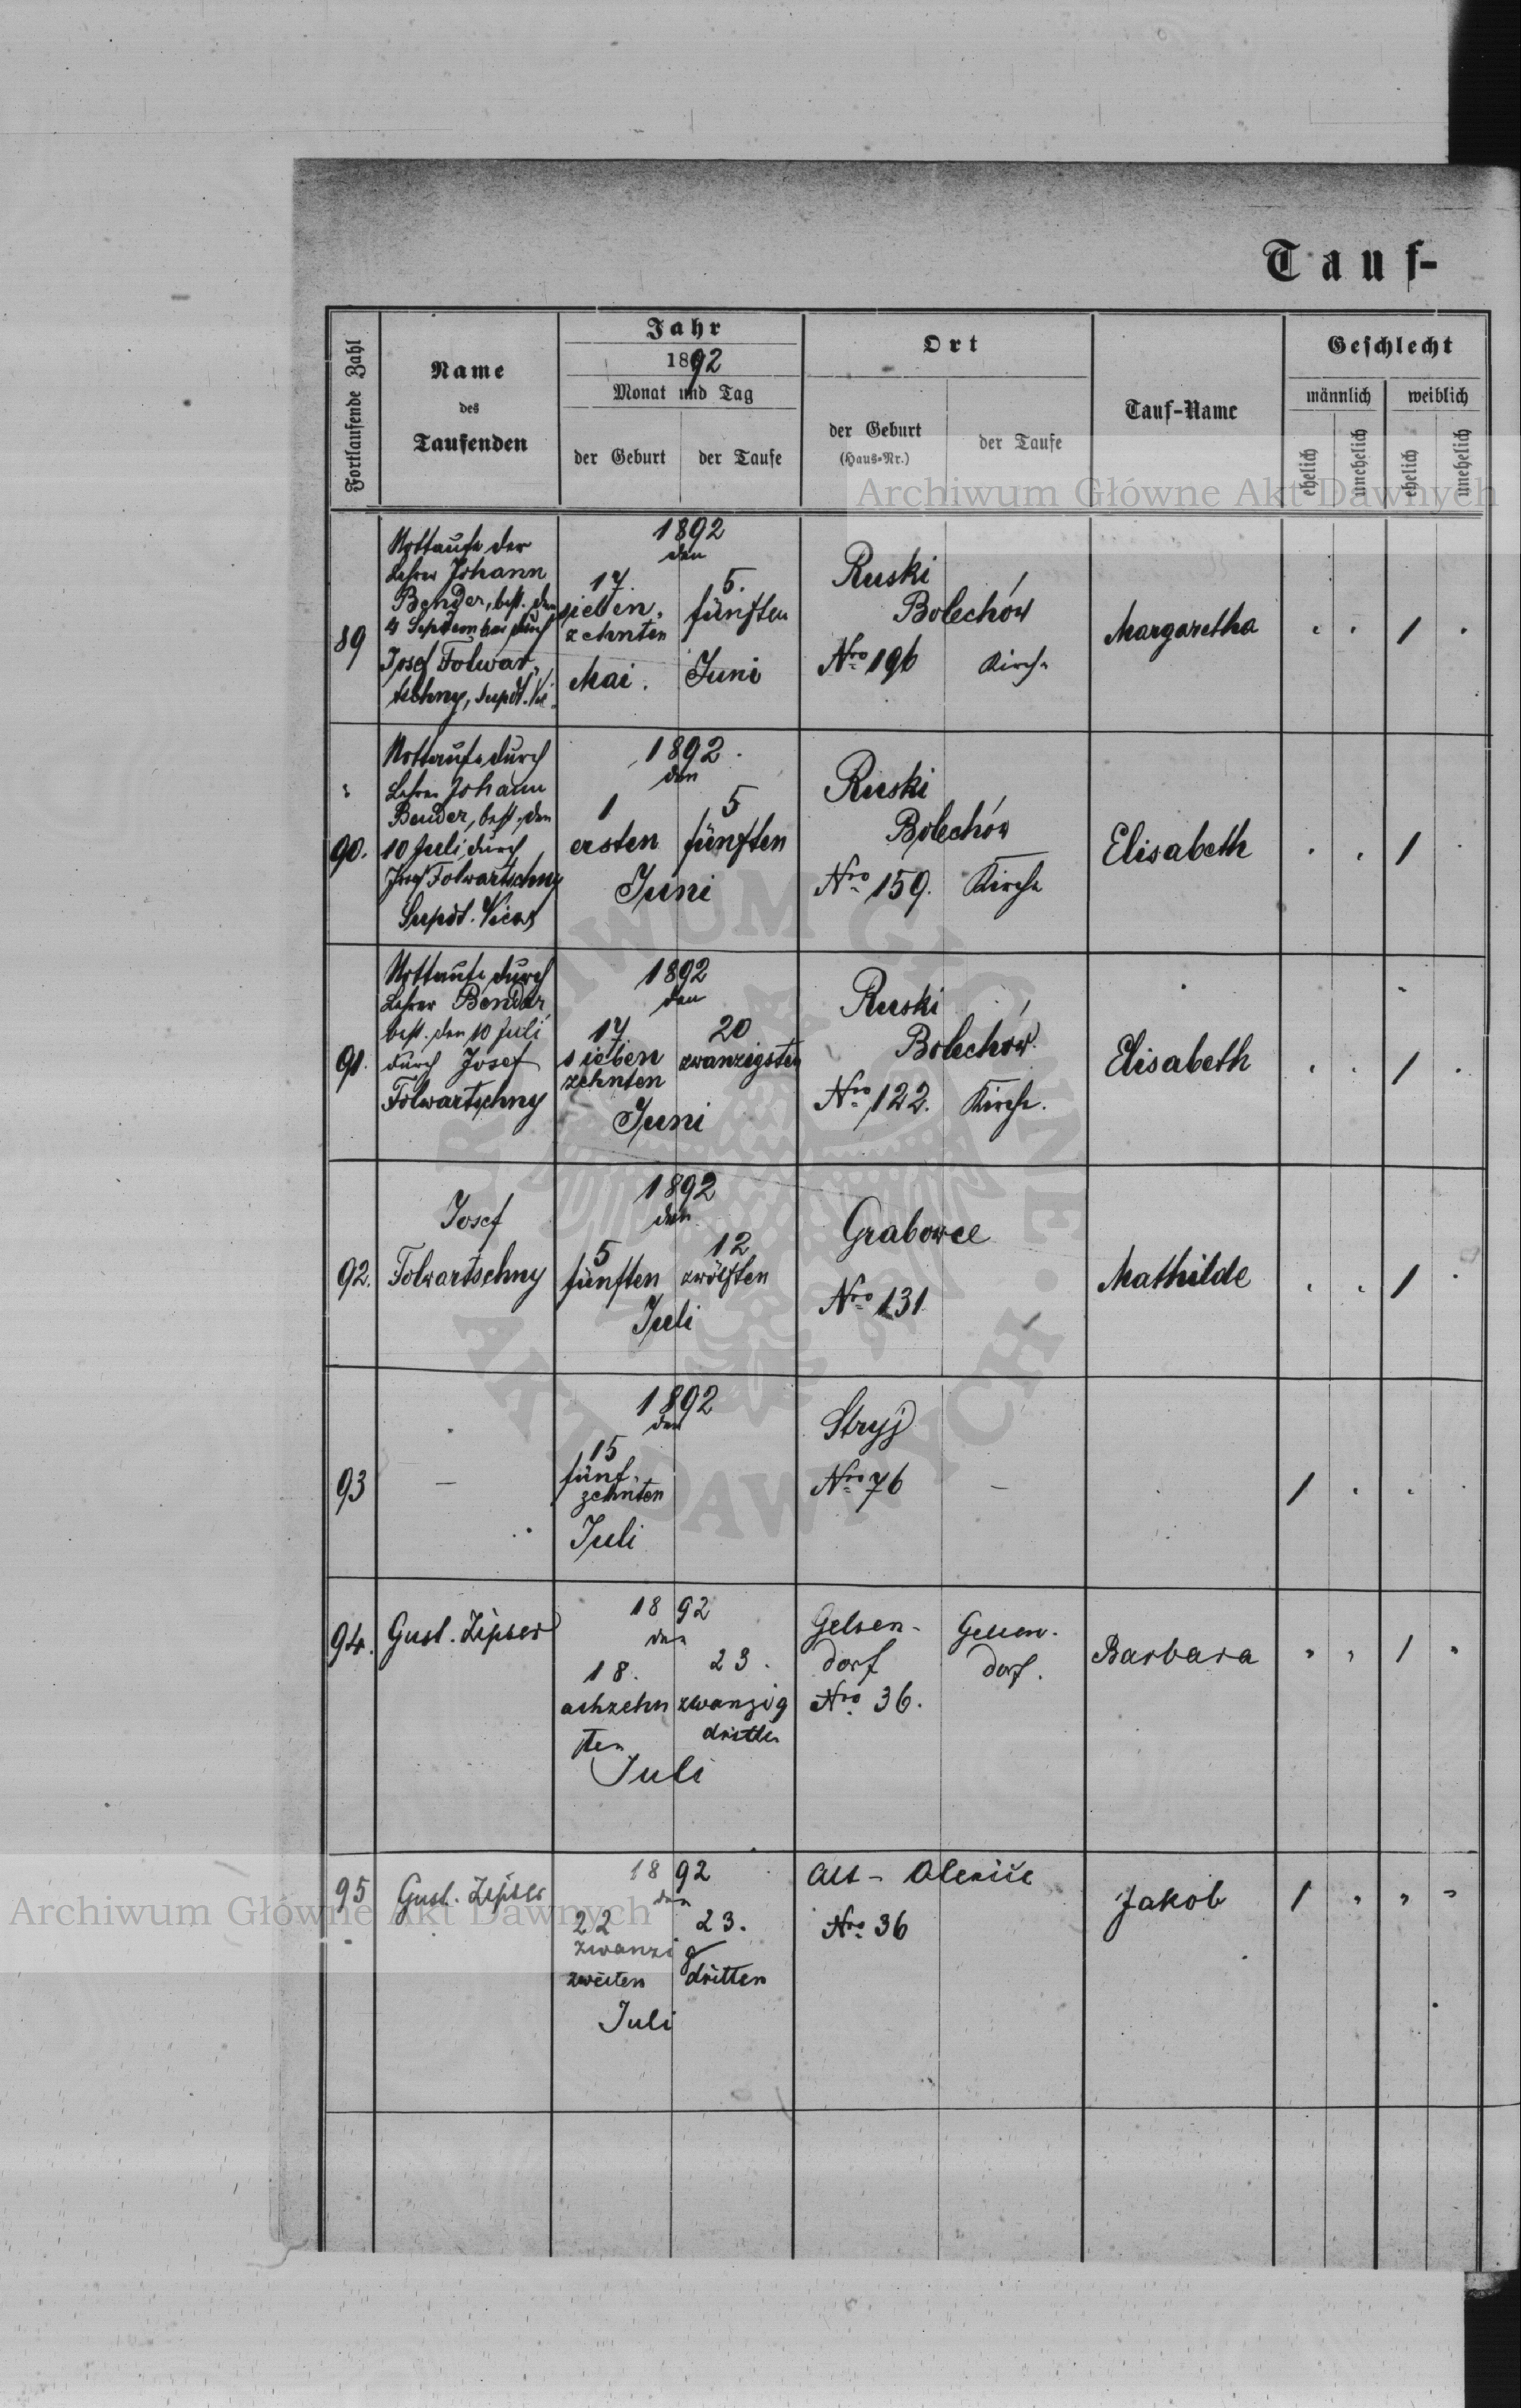 Tauf-
Fortlaufende Zahl
Name
des
Taufenden
Jahr
1892
Monat und Tag
der Geburt
der Taufe
Ort
der Geburt
(Haus-Nr.)
der Taufe
Tauf-Name
Geschlecht
männlich
weiblich
ehelich
unehelich
ehelich
unehelich
Archiwum Główne Akt Dawnych
89
Nottaufe der
Lehrer Johann
Bender, best. den
4 September durch
Josef Folwar-
tschny, Supdt. Vi-
1892
den
17.
sieben-
zehnten
Mai.
5.
fünften
Juni
Ruski
Bolechów
Nro 196
Kirche
Margaretha
1
90.
Nottaufe durch
Lehrer Johann
Bender, best. den
10 Juli durch
Josef Folwartschny
Supdt. Vicar
1892.
den
1
ersten
5
fünften
Juni
Ruski
Bolechów
Nro 159.
Kirche
Elisabeth
1
91.
Nottaufe durch
Lehrer Bender
best. den 10 Juli
durch Josef
Folwartschny
1892
den
17
sieben
zehnten
20
zwanzigsten
Juni
Ruski
Bolechów.
Nro 122.
Kirche.
Elisabeth
1
92.
Josef
Folwartschny
1892
den
5
fünften
12
zwölften
Juli
Grabowce
Nro 131
Mathilde
1
93
-
1892
den
15
fünf-
zehnten
Juli
Stryj
Nro 76
-
1
94.
Gust. Zipser
1892
den
18.
achzehn
ten
23.
zwanzig
dritten
Juli
Gelsen-
dorf
Nro 36.
Gelsen-
dorf.
Barbara
1
95
Gust. Zipser
1892
den
22
23.
zwanzig
zweiten
dritten
Juli
Alt-Oleksice
Nro 36
Jakob
1
Archiwum Główne Akt Dawnych
ARCHIWUM GŁÓWNE AKT DAWNYCH